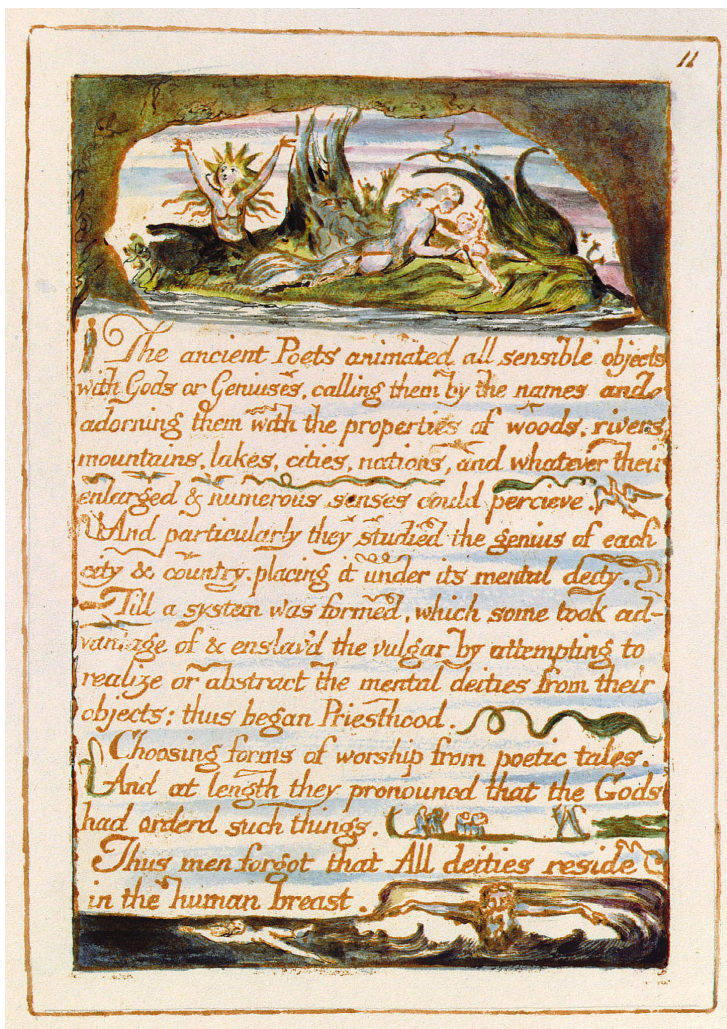 11
The ancient Poets animated all sensible objects
with Gods or Geniuses, calling them by the names and
adorning them with the properties of woods, rivers,
mountains, lakes, cities, nations, and whatever their
enlarged & numerous senses could percieve.
And particularly they studied the genius of each
city & country. placing it under its mental deity.
Till a system was formed, which some took ad-
vantage of & enslav'd the vulgar by attempting to
realize or abstract the mental deities from their
objects: thus began Priesthood.
Choosing forms of worship from poetic tales.
And at length they pronouncd that the Gods
had orderd such things.
Thus men forgot that All deities reside
in the human breast.